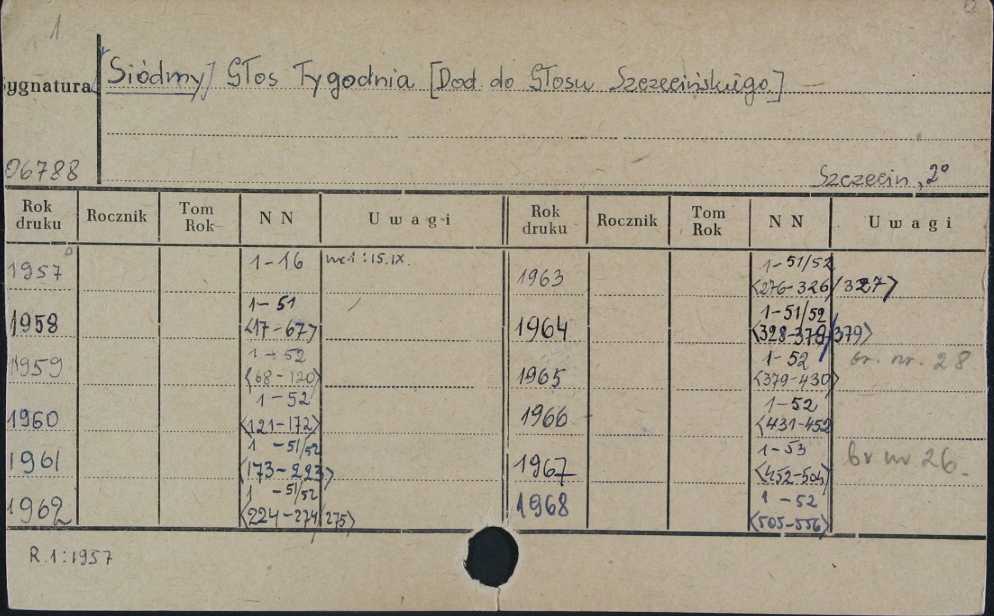 1
Sygnatura
Siódmy] Głos Tygodnia [Dod. do Głosu Szczecińskiego]
06788
Szczecin, 2°
Rok druku Rocznik Tom Rok NN Uwagi Rok druku Rocznik Tom Rok NN Uwagi
1957 1-16 nr 1:15.IX.
1958 1-51 <17-67>
1959 1-52 <68-120>
1960 1-52 <121-172>
1961 1-51/52 <173-223>
1962 1-51/52 <224-274/275>
1963 1-51/52 <276-326/327>
1964 1-51/52 <328-378/379>
1965 1-52 <379-430> br. nr. 28
1966 1-52 <431-452
1967 1-53 <452-504> br nr 26-
1968 1-52 <505-556>
R. 1:1957